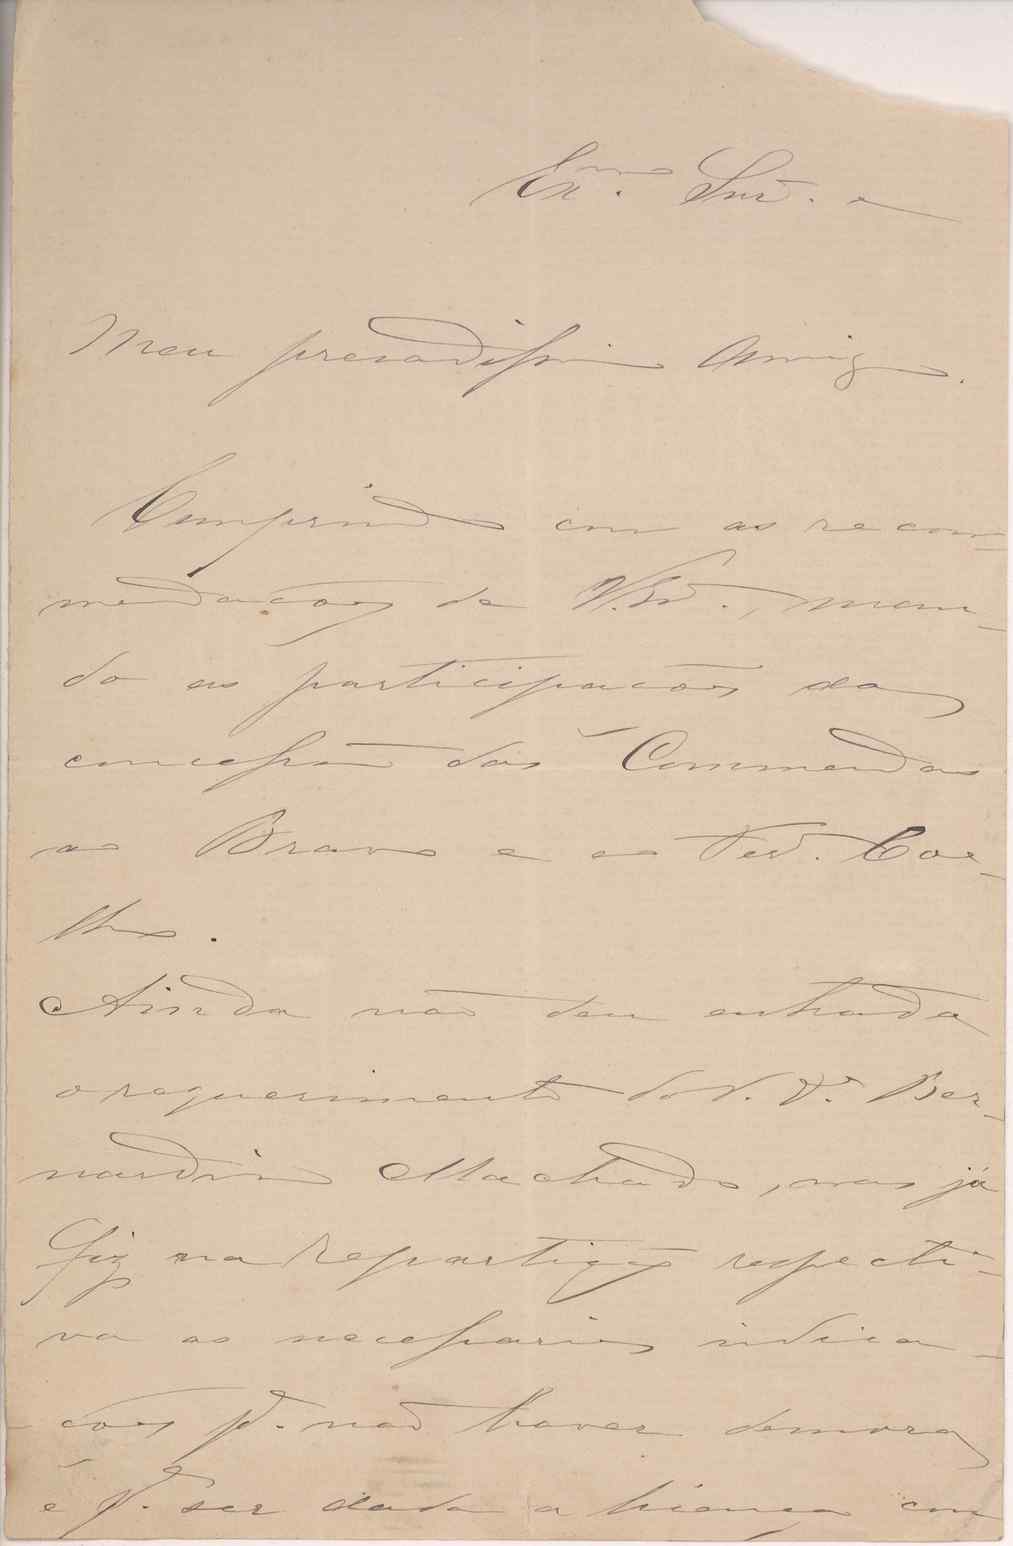 Exmo. Snr. e
Meu presadissimo Amigo.
Cumprindo com as recom-
mendações de V. Exª., man-
do as participações da
concessão das Commendas
ao Bravo e ao Ped. Coe-
lho.
Ainda não deu entrada
o requerimento do Ber-
nardino Machado, mas já
fiz na Repartição respecti-
va as necessarias indica-
ções pª. não haver demora
e pª. ser dada a licença com